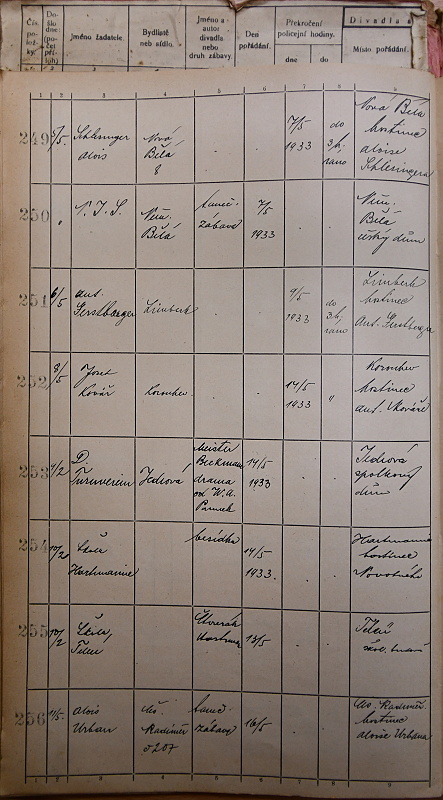 Čís. po- lož- ky.
Došlo dne: (po- čet pří- loh)
Jméno žadatele.
Bydliště neb sídlo.
Jméno a autor divadla nebo druh zábavy.
Den pořádání.
Překročení policejní hodiny.
dne
do
Divadla a
Místo pořádání.
1 2 3 4 5 6 7 8 9
249 5/5. Schlesinger Alois
Nová Bělá 8
7/5 1933
do 3 h. ráno
Nová Bělá hostinec Aloise Schlesingera
250 "
N. J. S.
Něm. Bělá
taneč. zábava
7/5 1933
Něm. Bělá český dům
251 6/5 Ant. Gerstberger
Limberk
7/5 1933
do 3 h. ráno
Limberk hostinec Ant. Gerstberger
252 8/5 Josef Kovář
14/5 1933
"
hostinec Ant. Kováře
253
D. Turnverein
Jedlová
Meister drama od W. A.
14/5 1933
Jedlová spolkový dům
254
Škola Hartmanice
besídka
14/5 1933.
Hartmanice hostinec Novotného
255 10/2
Škola, Telecí
13/5
Telecí
256 11/5 Alois Urban
čes. Radiměř č 207
taneč. zábava
16/5
čes. Radiměř hostinec Aloise Urbana
1 2 3 4 5 6 7 8 9